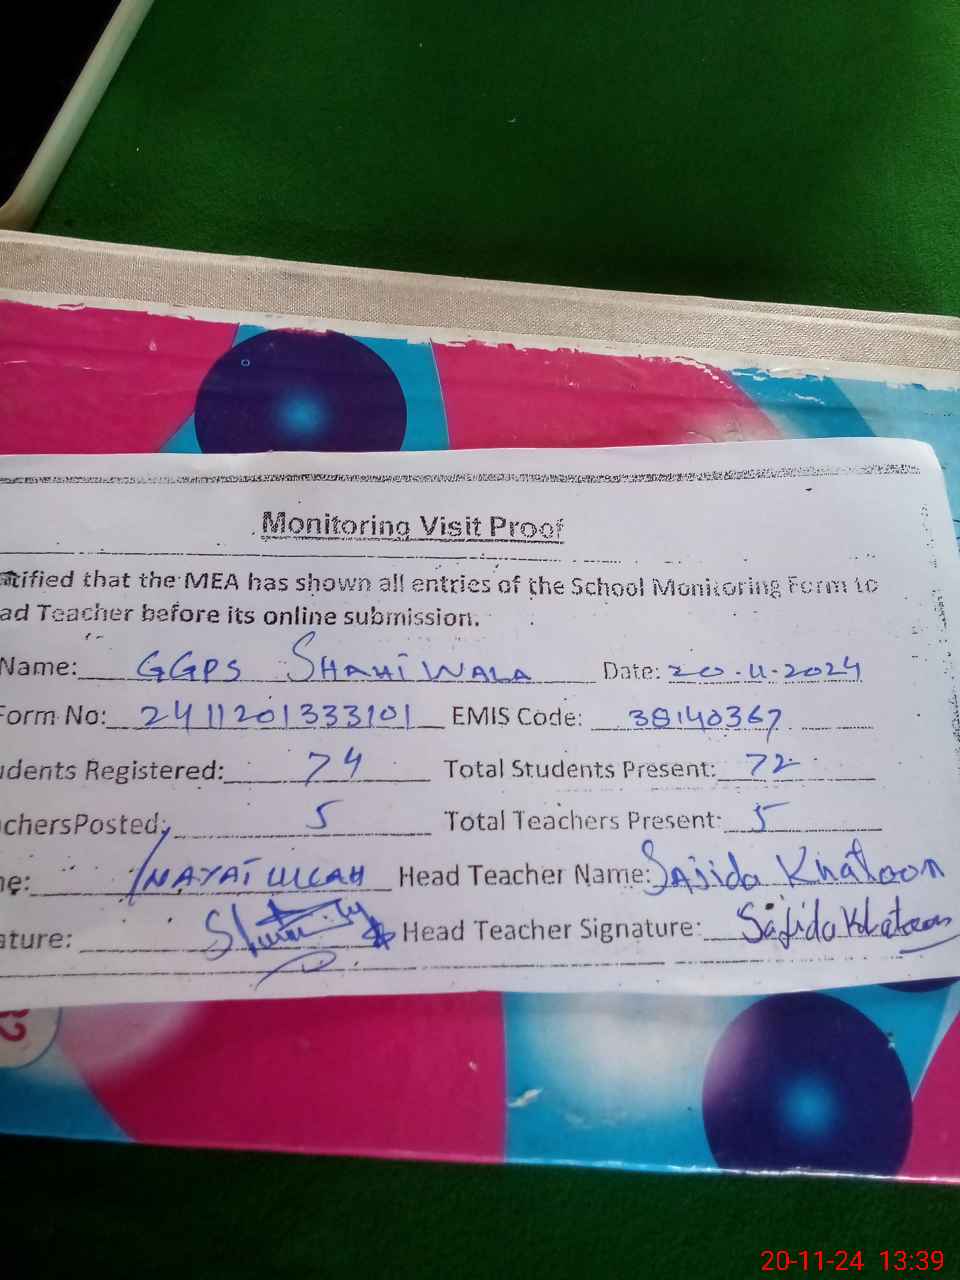 Monitoring Visit Proof
tified that the MEA has shown all entries of the School Monitoring Form to
ad Teacher before its online submission.
Name: GGPS SHAHIWALA Date: 20-11-2024
Form No: 2411201333101 EMIS Code: 38140367
udents Registered: 74 Total Students Present: 72
chersPosted: 5 Total Teachers Present: 5
e: INAYAT ULLAH Head Teacher Name: Sajida Khatoon
ature: Head Teacher Signature: Sajida Khatoon
20-11-24 13:39